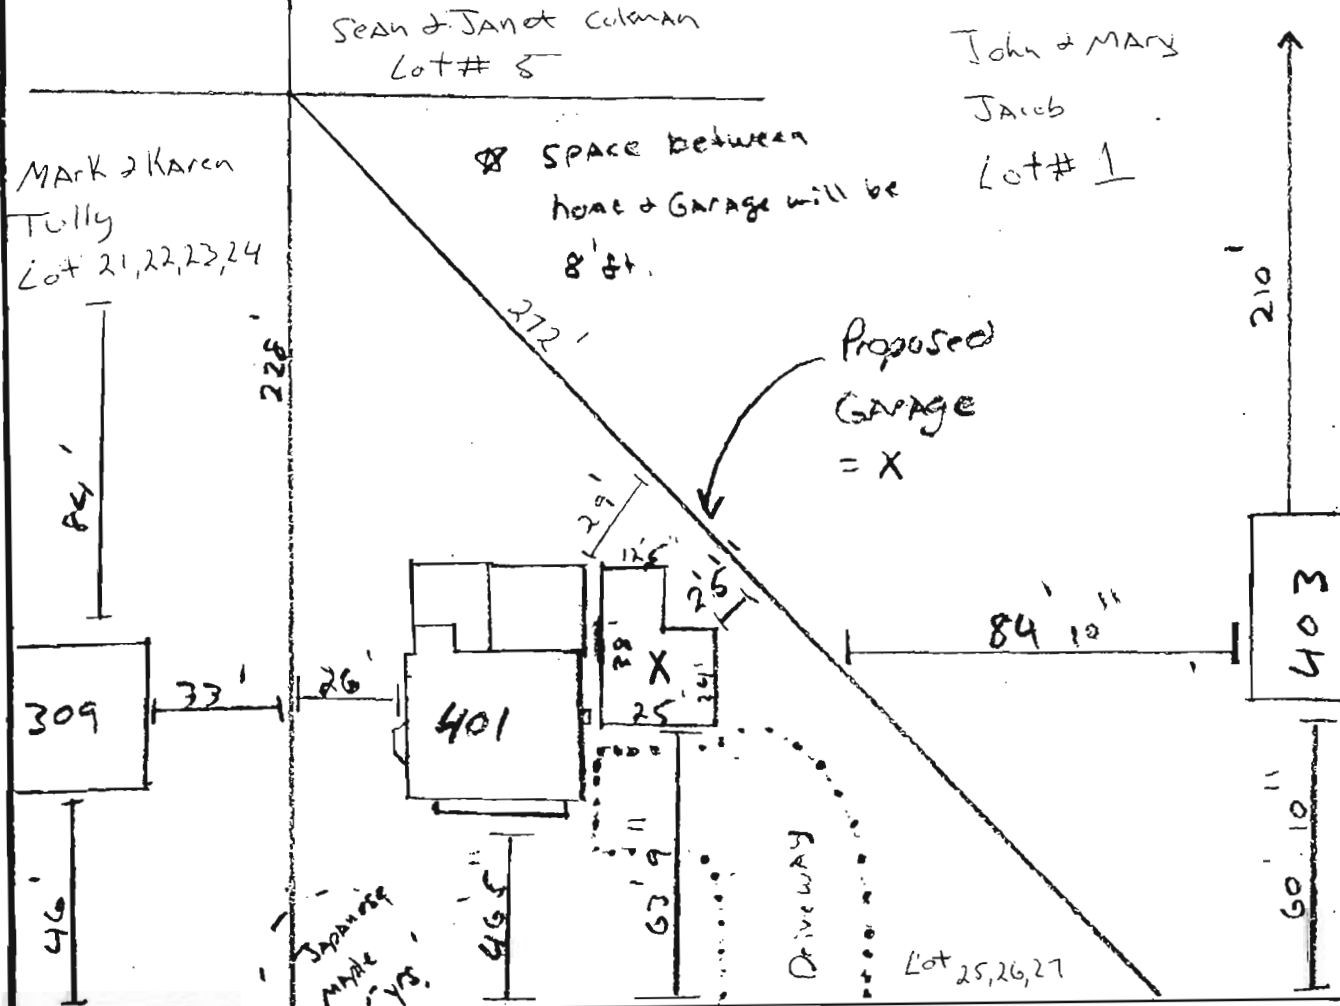 Sean & Janet Coleman
Lot # 5
John & Mary
Jacob
Lot # 1
Mark & Karen
Tully
Lot 21,22,23,24
☆ Space between
home & Garage will be
8' ft.
228'
272'
210'
Proposed
Garage
= X
84'
29'
12'6"
2'5"
38'
X
24'
25'
84' 10"
403
309
33'
26'
401
46'
46' 5"
63' 9"
Driveway
60' 10"
Japanese
Maple
yrs.
Lot 25,26,27